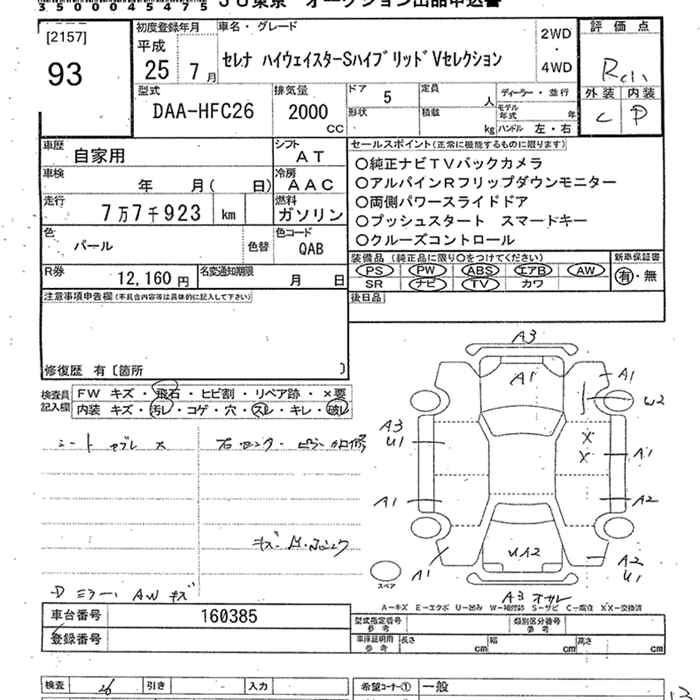 35000045475
JU東京 オークション出品申込書
[2157]
93
初度登録年月
平成
25年7月
車名・グレード
セレナ ハイウェイスターSハイブリッドVセレクション
2WD
・
4WD
評価点
R
外装 内装
C D
型式
DAA-HFC26
排気量
2000
CC
ドア
5
形状
定員
人
積載
kg
ディーラー・並行
モデル年式 年
ハンドル 左・右
車歴
自家用
シフト
AT
車検
年 月( 日)
冷房
AAC
走行
7万7千923 km
燃料
ガソリン
色
パール
色替
色コード
QAB
R券
12,160円
名変通知期限
月 日
セールスポイント(正常に機能するものに限ります)
○純正ナビTVバックカメラ
○アルパインRフリップダウンモニター
○両側パワースライドドア
○プッシュスタート スマートキー
○クルーズコントロール
装備品(純正品に限り○をつけてください)
PS PW ABS エアB AW
SR ナビ TV カワ
新車保証書
有・無
後日品
注意事項申告欄(不具合内容等は具体的に記入して下さい)
修復歴 有〔箇所 〕
検査員記入欄
FW キズ・飛石・ヒビ割・リペア跡・×要
内装 キズ・汚レ・コゲ・穴・スレ・キレ・破レ
A3
A1
A1
W2
A3
U1
X
X
A1
A1
A2
UA2
A1
A2
U1
スペア
A3
ミラー、AW キズ
A-キズ E-エクボ U-凹み W-補修跡 S-サビ C-腐食 XX-交換済
車台番号
160385
登録番号
型式指定番号
参考
類別区分番号
参考
車庫証明用
参考
長さ cm
幅 cm
高さ cm
検査
引き
入力
希望コーナー①
一般